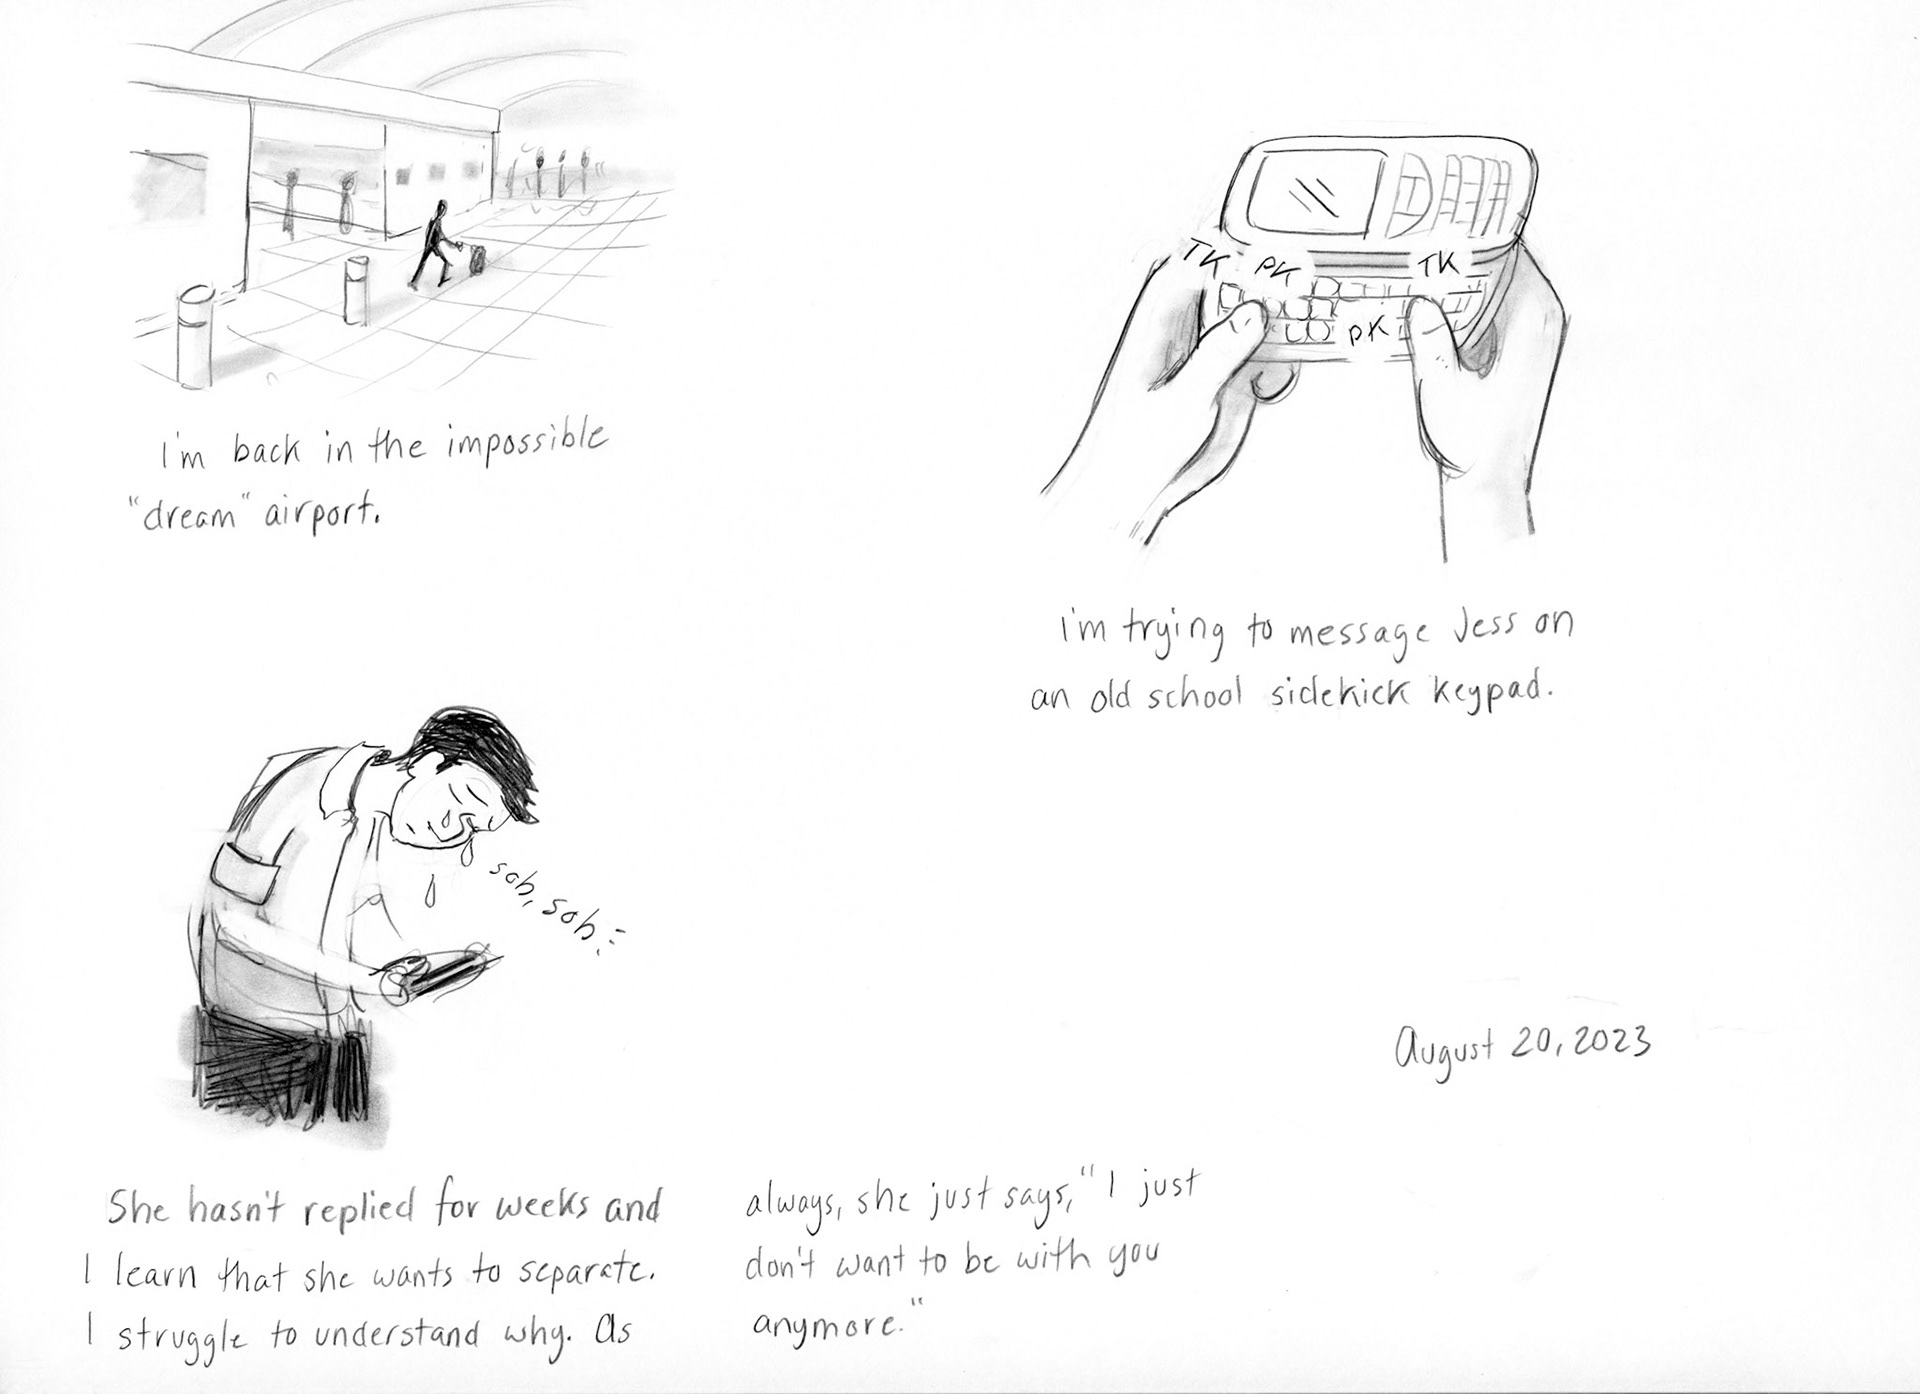 I'm back in the impossible
"dream" airport.
TK PK TK
PK
I'm trying to message Jess on
an old school sidekick keypad.
sob, sob
August 20, 2023
She hasn't replied for weeks and
I learn that she wants to separate.
I struggle to understand why. As
always, she just says, "I just
don't want to be with you
anymore."